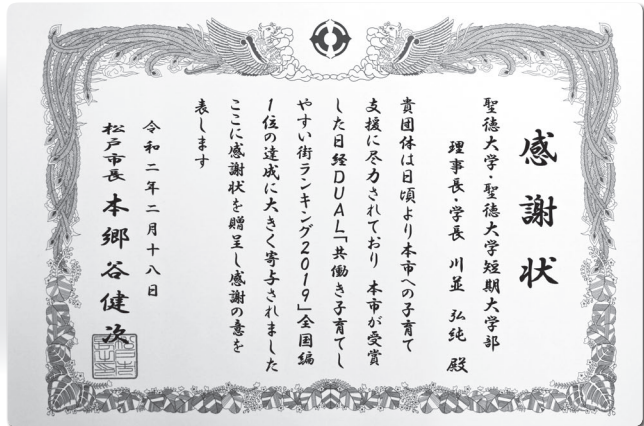 感謝状
聖徳大学・聖徳大学短期大学部
理事長・学長 川並 弘純 殿
貴団体は日頃より本市への子育て
支援に尽力されており 本市が受賞
した日経DUAL「共働き子育てし
やすい街ランキング2019」全国編
1位の達成に大きく寄与されました
ここに感謝状を贈呈し感謝の意を
表します
令和二年二月十八日
松戸市長 本郷谷健次